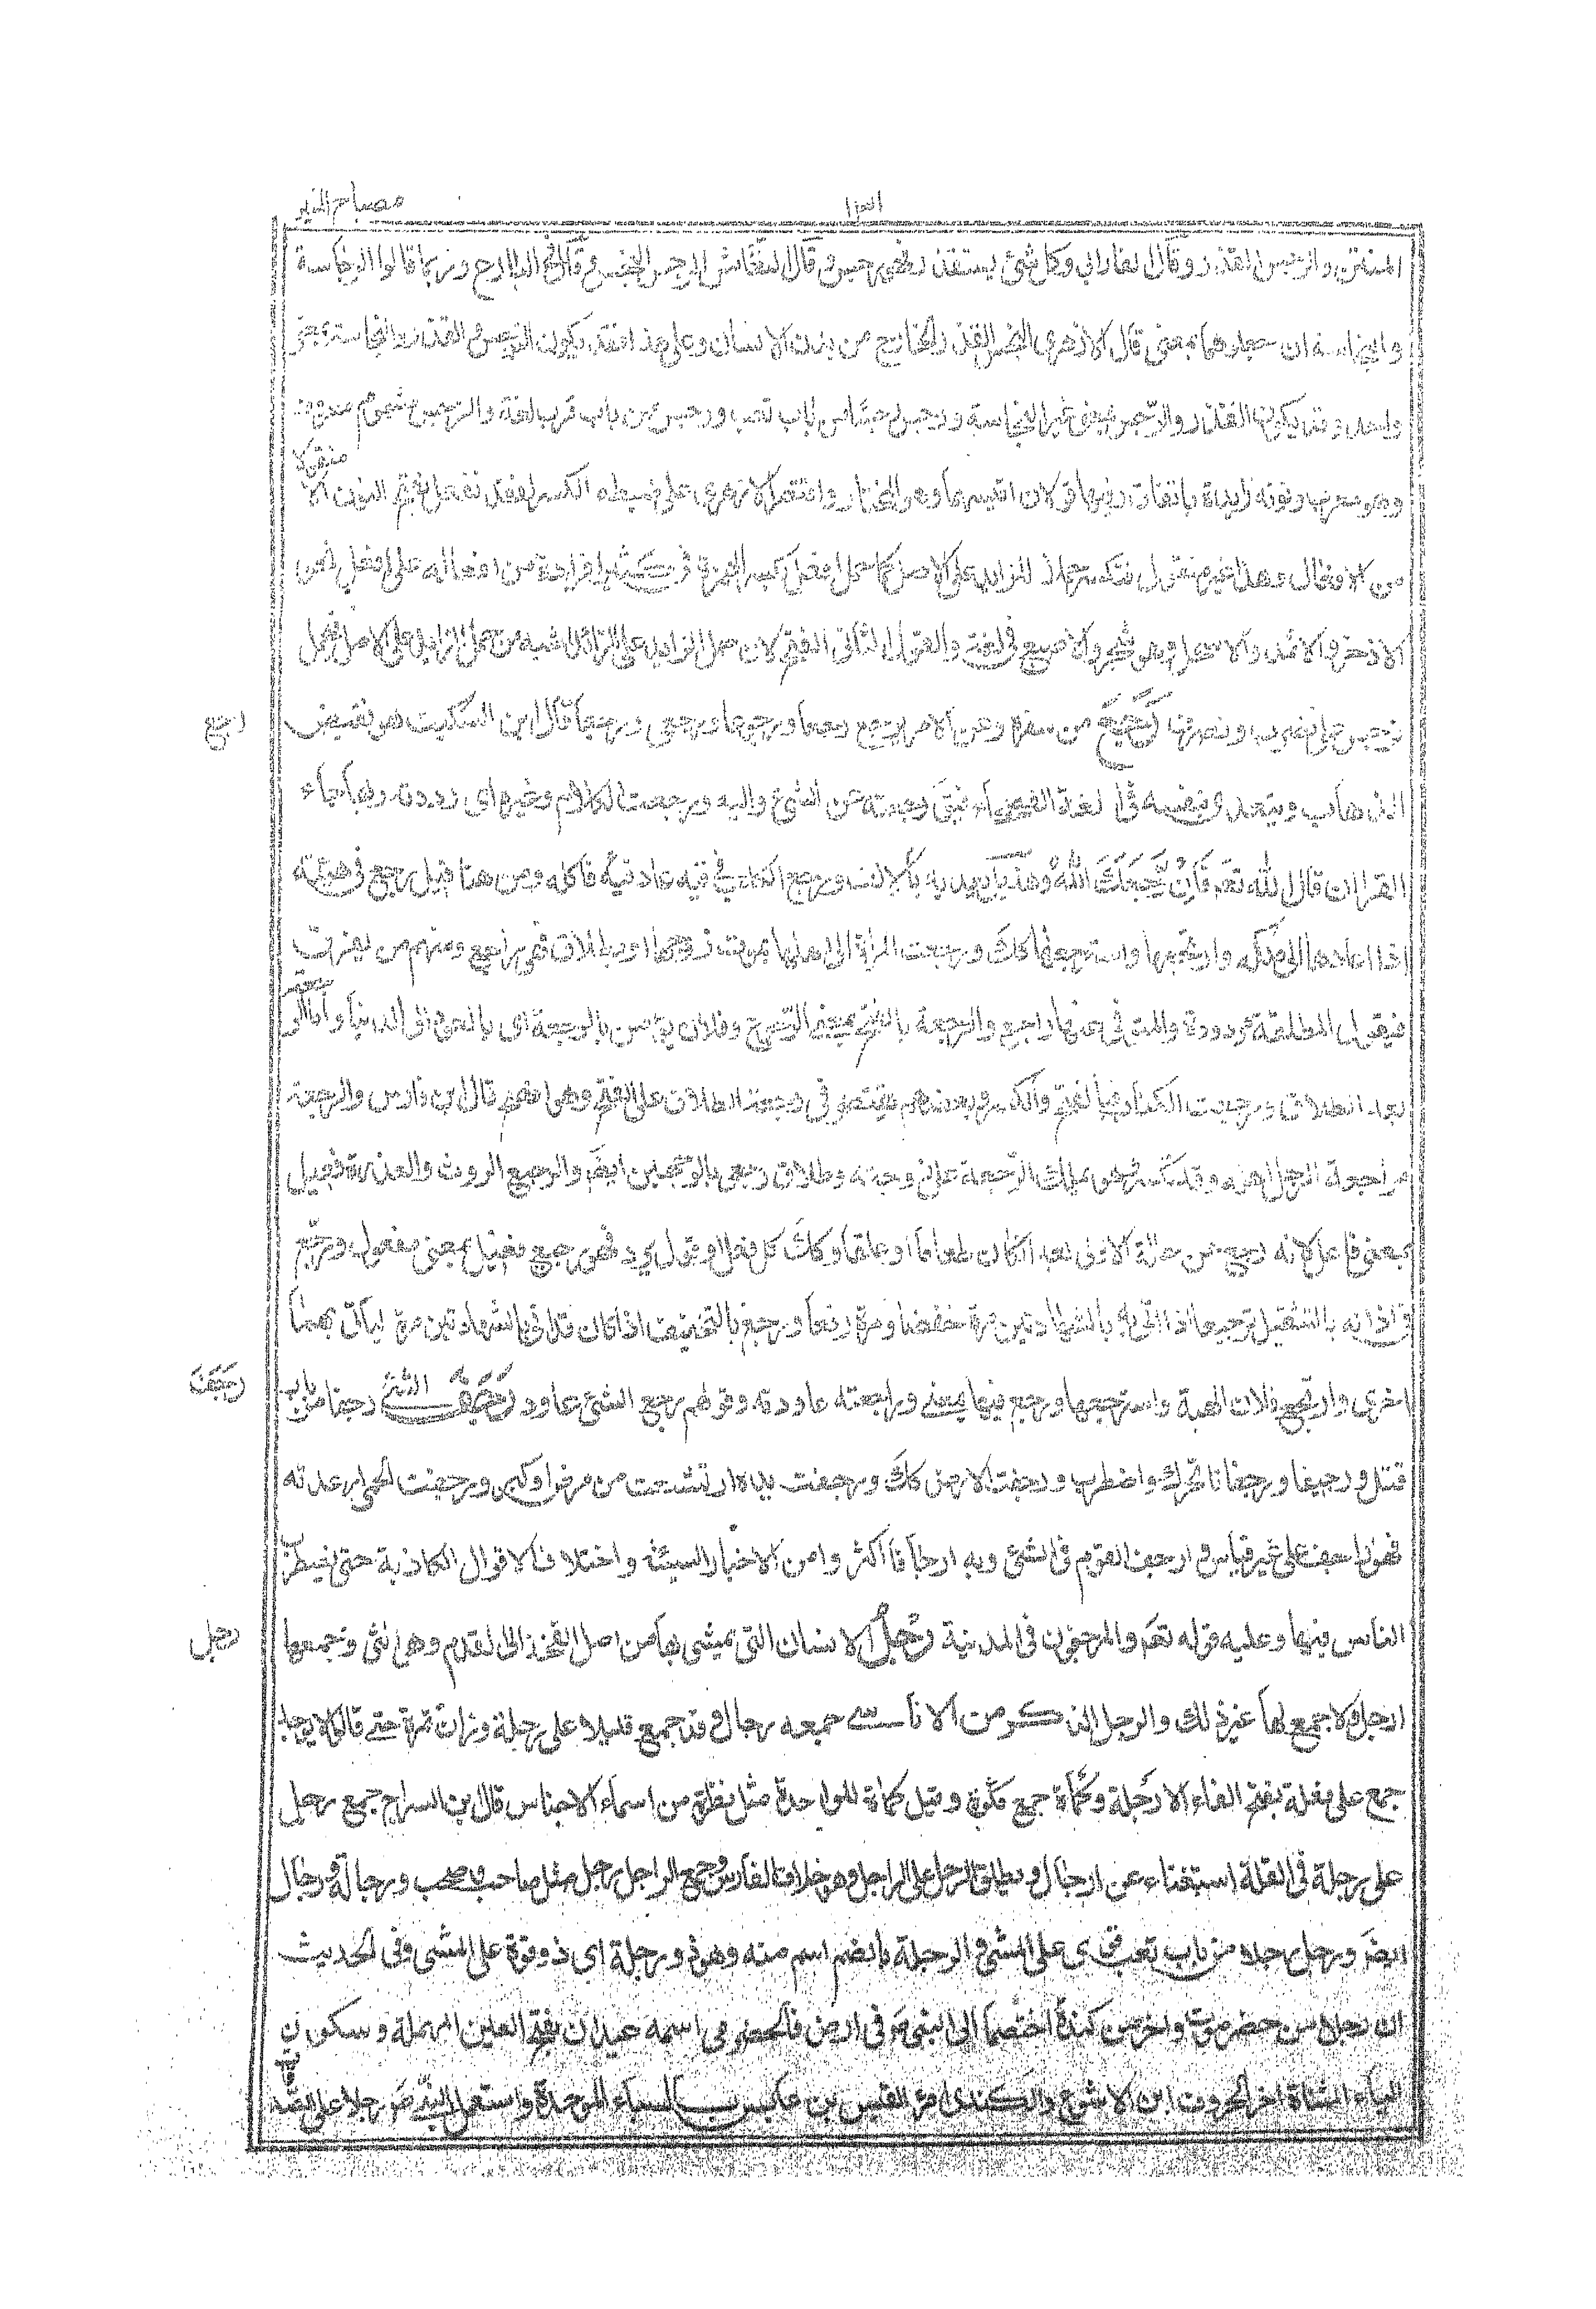 مصباح المنير
المنتن والرجس القذر وقال الفارابي وكل شئ يستقذر فهو رجس وقال النقاش الرجس النجس وقال في البارع وربما قالوا الرجاسة
والنجاسة ان جعلوهما بمعنى قال الازهرى النجس القذر الخارج من بدن الانسان وعلى هذا فقد يكون الرجس والقذر والنجاسة بمعنى
واحد وقد يكون القذر والرجس بمعنى غير النجاسة ورجس رجسا من باب تعب ورجس من باب قرب لغة والنرجس مشموم معروف
وهو معرب ونونه زايدة باتفاق وفيها قولان اقيسهما وهو المختار واقتصر الازهرى على ضبطه الكسر لفقد نفعل بفتح النون الا
منقولا
من الافعال وهذا غير منقول فتكسر حملا للزايد على الاصل كما حمل افعل بكسر الهمزة في كثير من افراده من افعاله على افعل نحو
الاذخر والاثمد والاسحل وهو شجر والاصبع في لغة والقول الثاني الفتح لان حمل الزايد على الزائد اشبه من حمل الزايد على الاصل فيحمل
نرجس على نضرب ونصرف رَجَعَ من سفره وعن الامر يرجع رجعا ورجوعا ورجعى ومرجعا قال ابن السكيت هو نقيض
رجع
الذهاب ويتعدى بنفسه في اللغة الفصحى فيقال رجعته عن الشئ واليه ورجعت الكلام وغيره اى رددته وبها جاء
القران قال الله تعَ فَاِنْ رَّجَعَكَ اللّٰهُ وهذيل تعديه بالالف ورجع الكلب في قيئه عاد فيه فاكله ومن هنا قيل رجع في هبته
اذا اعادها الى ملكه وارتجعها واسترجعها كك ورجعت المراة الى اهلها بموت زوجها او بطلاق فهي راجع ومنهم من يفرق
فيقول المطلقة مردودة والمتوفى عنها راجع والرجعة بالفتح بمعنى الرجوع وفلان يؤمن بالرجعة اى بالعود الى الدنيا واما الرجعة
بعد الطلاق ورجعت الكتاب فبالفتح والكسر وبعضهم يقتصر في رجعة الطلاق على الفتح وهو افصح قال ابن فارس والرجعة
مراجعة الرجل اهله وقد تكسر وهو يملك الرجعة على زوجته وطلاق رجعى بالوجهين ايضَ والرجيع الروث والعذرة فعيل
بمعنى فاعل لانه رجع عن حالة الاولى بعد ان كان طعاما او علفا وكك كل فعل او قول يرد فهو رجيع فعيل بمعنى مفعول ورجّع
في اذانه بالتثقيل ترجيعا اذا اتى به بالشهادتين مرة خفضا ومرة رفعا ورجع بالتخفيف اذا كان قد اتى بالشهادتين مرة لياتى بهما
اخرى وارتجع فلان الهبة واسترجعها ورجع فيها بمعنى وراجعته عاودته وقولهم رجع الشئ عاود رَجَفَ الشئ رجفا من باب
رَجَفَ
قتل ورجيفا ورجفانا تحرك واضطرب ورجفت الارض كك ورجفت يداه ارتعشت من مرض او كبر ورجفت الحمى ارعدته
فهو راجف على غير قياس وارجف القوم في الشئ وبه ارجافا اكثروا من الاخبار السيئة واختلاف الاقوال الكاذبة حتى يضطرب
الناس فيها وعليه قوله تعَ والمرجفون في المدينة رِجْلُ الانسان التى يمشى بها من اصل الفخذ الى القدم وهى انثى وجمعها
رجل
ارجل ولا جمع لها غير ذلك والرجل الذكر من الاناسى جمعه رجال وقد جمع قليلا على رجلة وزان تمرة حتى قالوا لا يوجد
جمع على فعلة بفتح الفاء الا رَجلة وكَمأة جمع كمؤ وقيل كمأة للواحدة مثل نظائره من اسماء الاجناس قال ابن السراج جمع رجل
على رجلة في القلة استغناء عن ارجال ويطلق الرجل على الراجل وهو خلاف الفارس وجمع الراجل رجل مثل صاحب وصحب ورجالة ورجال
ايضَ ورجل رجلا من باب تعب قوى على المشى والرجلة بالضم اسم منه وهو ذو رجلة اى ذو قوة على المشى وفى الحديث
ان رجلا من حضرموت واخر من كندة اختصما الى النبى صَ في ارض فالحضرمى اسمه عيدان بفتح العين المهملة وسكون
الياء المثناة اخر الحروف ابن الاشوع والكندى امرؤ القيس بن عابس بالباء الموحدة واستعمل النبى صَ رجلا على الصدقة